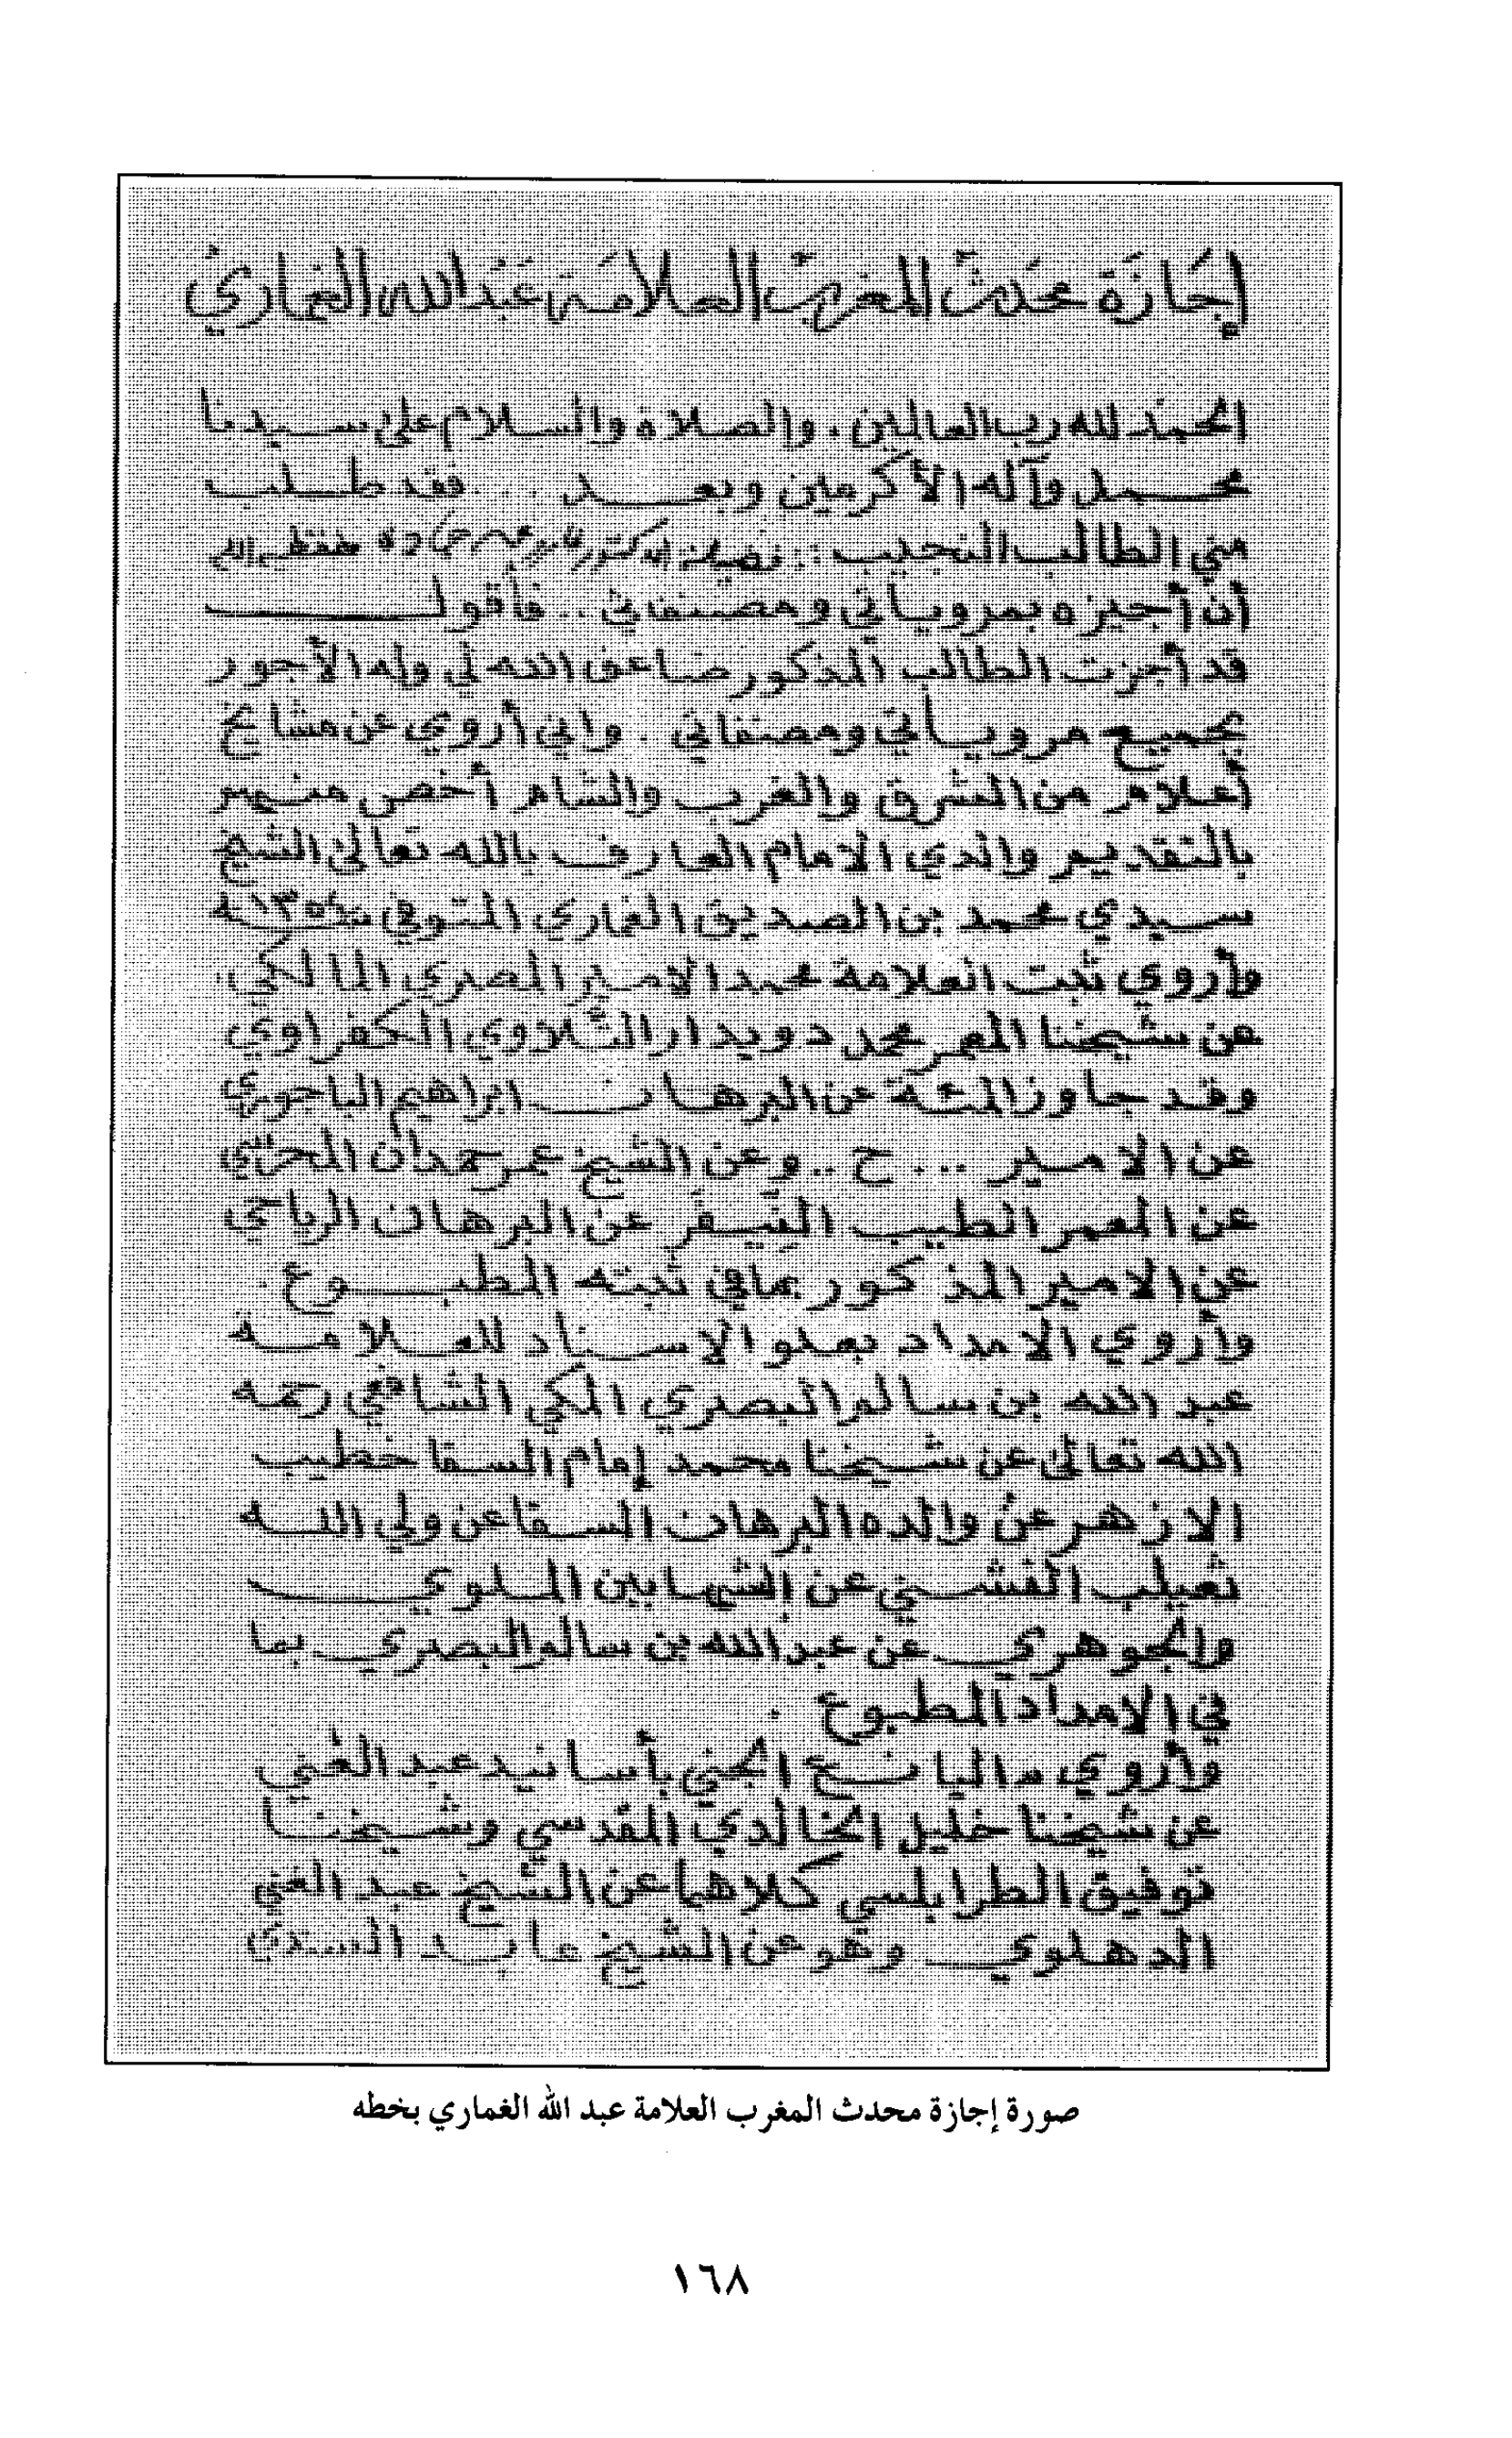 إجَازَة محَدث المغرب العلامَة عَبْد الله الغماري
الحمد لله رب العالمين . والصلاة والسلام على سيدنا
محمد وآله الأكرمين وبعد .. فقد طلب
مني الطالب النجيب : فضيلة الدكتور حمادة حفظه الله
أن أجيزه بمروياتي ومصنفاتي .. فأقول
قد أجزت الطالب المذكور ضاعف الله لي وله الأجور
بجميع مروياتي ومصنفاتي . واني أروي عن مشايخ
أعلام من الشرق والغرب والشام أخص منهم
بالتقديم والدي الامام العارف بالله تعالى الشيخ
سيدي محمد بن الصديق الغماري المتوفى سنة ١٣٥٤
وأروي ثبت العلامة محمد الامير المصري المالكي .
عن شيخنا المعمر محمد دويدار التلاوي الكفراوي
وقد جاوز المئة عن البرهان ابراهيم الباجوري
عن الامير ... ح .. وعن الشيخ عمر حمدان المحرَسي
عن المعمر الطيب النَيفَر عن البرهان الرياحي
عن الامير المذكور بمافي ثبته المطبوع .
وأروي الامداد بعلو الاسناد للعلامة
عبد الله بن سالم البصري المكي الشافعي رحمه
الله تعالى عن شيخنا محمد إمام السقا خطيب
الازهر عن والده البرهان السقا عن ولي الله
ثعيلب الفشني عن الشهابين الملوي
والجوهري عن عبد الله بن سالم البصري بما
في الامداد المطبوع .
وأروي مااليانع الجني بأسانيد عبد الغني
عن شيخنا خليل الخالدي المقدسي وشيخنا
توفيق الطرابلسي كلاهما عن الشيخ عبد الغني
الدهلوي وهو عن الشيخ عابد السندي
صورة إجازة محدث المغرب العلامة عبد الله الغماري بخطه
١٦٨